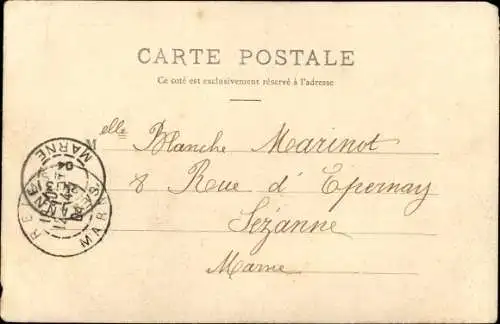 CARTE POSTALE
Ce côté est exclusivement réservé à l'adresse
Melle Blanche Marinot
8 Rue d'Epernay
Sézanne
Marne
MARNE
04
MARNE